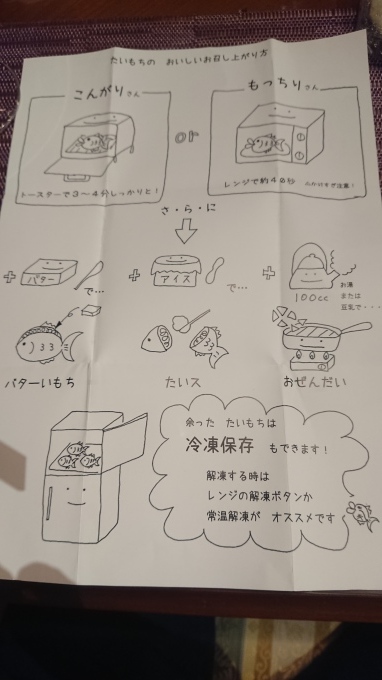 たいもちの おいしいお召し上がり方
こんがりさん
トースターで3〜4分しっかりと!
or
もっちりさん
レンジで約40秒 ※かけすぎ注意!
さ・ら・に
+ バター で…
+ アイス で…
+ 100cc
お湯
または
豆乳で・・・
バターいもち
たいス
おぜんだい
余った たいもちは
冷凍保存 もできます!
解凍する時は
レンジの解凍ボタンか
常温解凍が オススメです